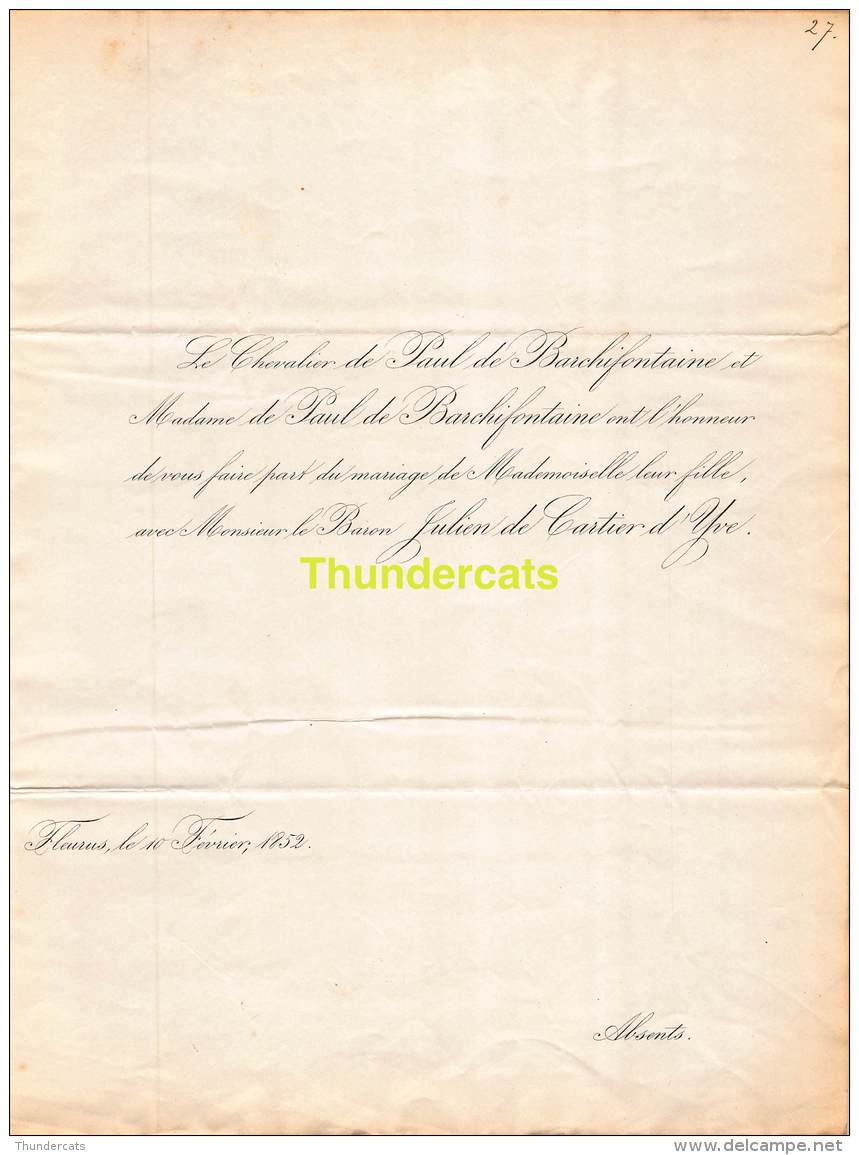 27.
Le Chevalier de Paul de Barchifontaine et
Madame de Paul de Barchifontaine ont l'honneur
de vous faire part du mariage de Mademoiselle leur fille,
avec Monsieur le Baron Julien de Cartier d'Yve.
Thundercats
Fleurus, le 10 Février, 1852.
Absents.
Thundercats
www.delcampe.net